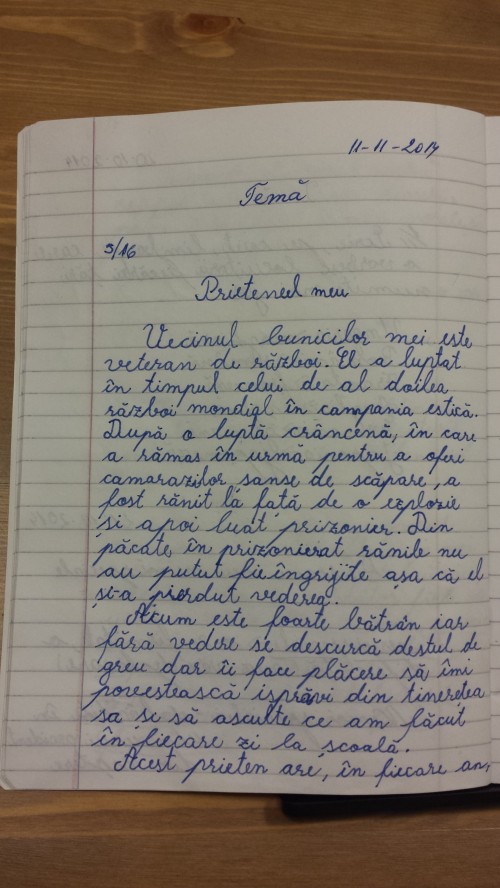 11-11-2014
Temă
5/16
Prietenul meu
Vecinul bunicilor mei este
veteran de război. El a luptat
în timpul celui de al doilea
război mondial în campania estică.
După o luptă crâncenă, în care
a rămas în urmă pentru a oferi
camarazilor șanse de scăpare, a
fost rănit la față de o explozie
și apoi luat prizonier. Din
păcate, în prizonierat rănile nu
au putut fi îngrijite așa că el
și-a pierdut vederea.
Acum este foarte bătrân iar
fără vedere se descurcă destul de
greu dar îi face plăcere să îmi
povestească isprăvi din tinerețea
sa și să asculte ce am făcut
în fiecare zi la școală.
Acest prieten are, în fiecare an,